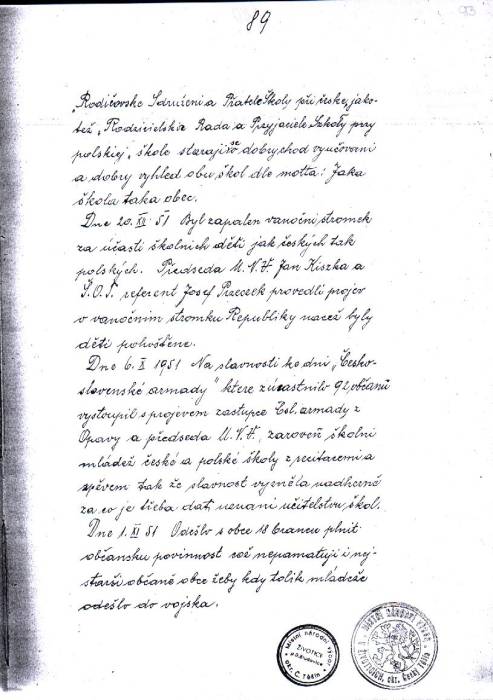 89
93
„Rodičovske Sdruženi a Přatele Školy při česke, jako-
též „Rodzicielska Rada a Przyjaciele Szkoły przy
polskiej„ škole starají se o dobry, chod vyučovani
a dobry vyhled obu škol dle motta: Jaka
škola taka obec.
Dne 20. XII. 51 Byl zapalen vanoční stromek
za účasti školních děti jak českých tak
polských. Předseda M.N.V. Jan Kiszka a
Š.O.T. referent Josef Przeczek provedli projev
o vanočnim stromku Republiky načež byly
děti pohoštěne.
Dne 6. X 1951 Na slavnosti ke dni „Česko-
slovenské armady" ktere zúčastnilo 92, občanů
vystoupil s projevem zastupce Čsl. armady z
Opavy a předseda M.N.V., zaroveň školni
mládež české a polské školy z recitacemi a
zpěvem tak že slavnost vyzněla nadherně
za co je třeba dat, uznani učitelstvu, škol.
Dne 1. XI 51 Odešlo s obce 18 brancu plnit
občansku povinnost což nepamatují i nej-
starší občané obce žeby kdy tolik mládeže
odešlo do vojska.
Místní národní výbor
ŽIVOTICE
okr. Č. Těšín
Místní národní výbor
v Životicích, okr. Český Těšín